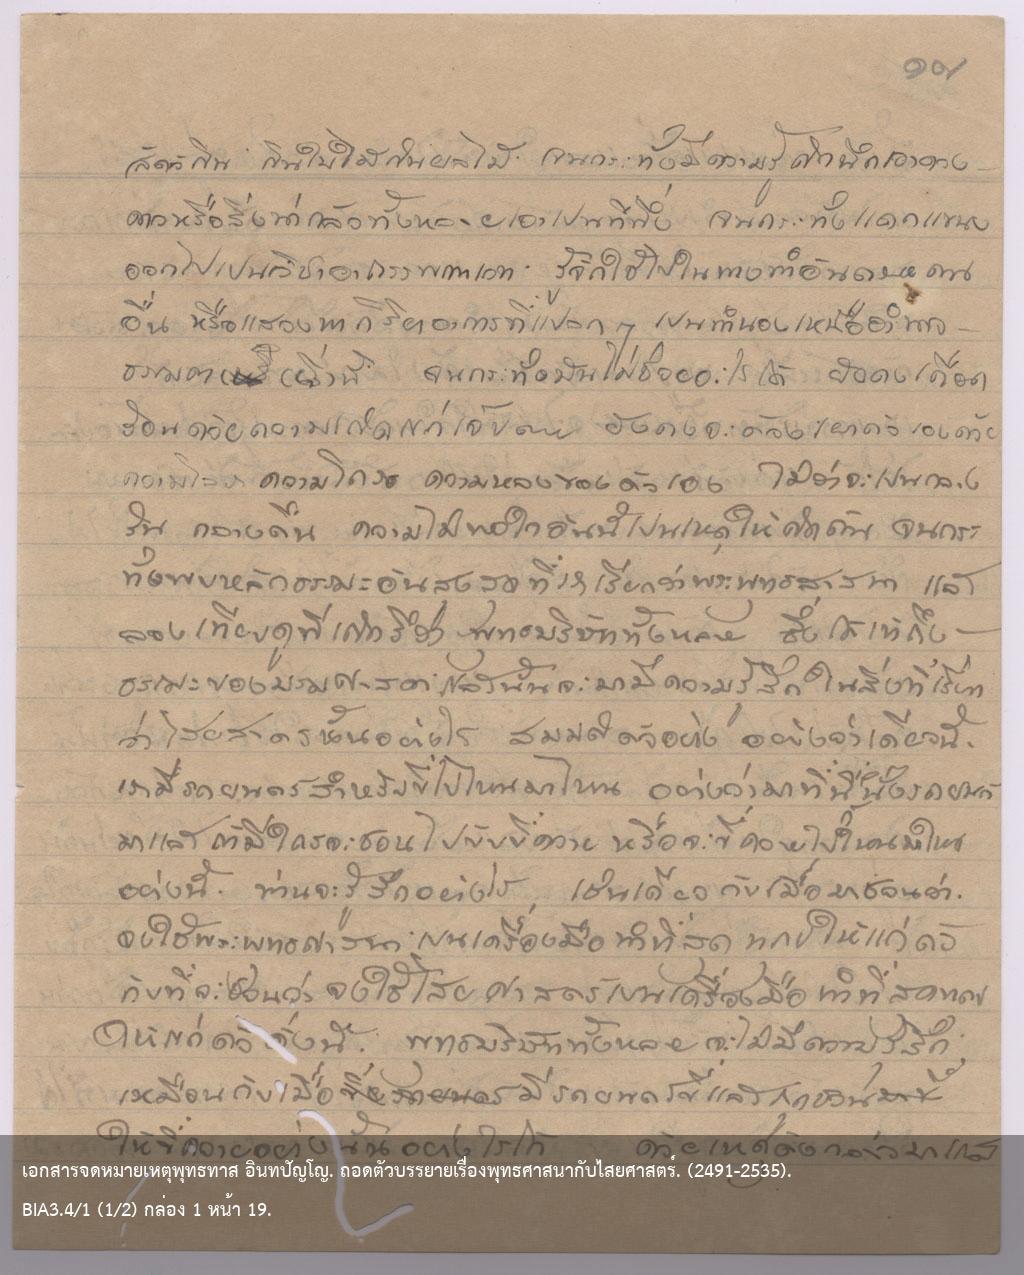 ๑๗
จนกระทั่งมีความรู้สึกนึกเอาดวง
ดาวหรือสิ่งน่ากลัวทั้งหลายเอาเป็นที่พึ่ง จนกระทั่งแตกแขนง
ออกไปเป็นวิชาอาถรรพณเวท รู้จักใช้ไปในทางทำอันตรายคน
อื่น หรือแสดงปาฏิหาริย์อาการที่แปลก ๆ เป็นทำนองเหนืออำนาจ
ธรรมดาเหล่านี้ จนกระทั่งมันไม่ช่วยอะไรได้ ยังคงเดือด
ร้อนด้วยความเกิดแก่เจ็บตาย ยังคงจะต้องเผาตัวเองด้วย
ความโลภ ความโกรธ ความหลงของตัวเอง ไม่ว่าจะเป็นกลาง
วัน กลางคืน ความไม่พอใจอันนี้เป็นเหตุให้คิดค้น จนกระ
ทั่งพบหลักธรรมะอันสูงสุดที่เราเรียกว่าพระพุทธศาสนา แล้ว
ลองเทียบดูทีเถิดซิว่า พุทธบริษัททั้งหลาย ซึ่งได้เข้าถึง
ธรรมะของบรมศาสดาแล้วนั้นจะมามีความรู้สึกในสิ่งที่เรียก
ว่าไสยศาสตร์นั้นอย่างไร สมมติตัวอย่าง อย่างว่าเดี๋ยวนี้
เรามีรถยนตร์สำหรับขี่ไปไหนมาไหน อย่างว่ามาที่นี่นั่งรถยนต์
มาแล้วถ้ามีใครจะชวนไปขับขี่ควาย หรือจะขี่ควายไปไหนมาไหน
อย่างนี้ ท่านจะรู้สึกอย่างไร เช่นเดียวกับเมื่อมาชวนว่า
จงใช้พระพุทธศาสนาเป็นเครื่องมือทำที่สุดทุกข์ให้แก่ตัว
กับที่จะชวนว่าจงใช้ไสยศาสตร์เป็นเครื่องมือทำที่สุดทุกข์
ให้แก่ตัวดั่งนี้ พุทธบริษัททั้งหลายจะไม่มีความรู้สึก
เหมือนกับเมื่อมีรถยนตร์ขี่แล้วถูกชวน
ให้ขี่ควายอย่างนั้นอย่างไรได้ ด้วยเหตุดังกล่าวมาแล้ว
เอกสารจดหมายเหตุพุทธทาส อินทปัญโญ. ถอดตัวบรรยายเรื่องพุทธศาสนากับไสยศาสตร์. (2491-2535).
BIA3.4/1 (1/2) กล่อง 1 หน้า 19.